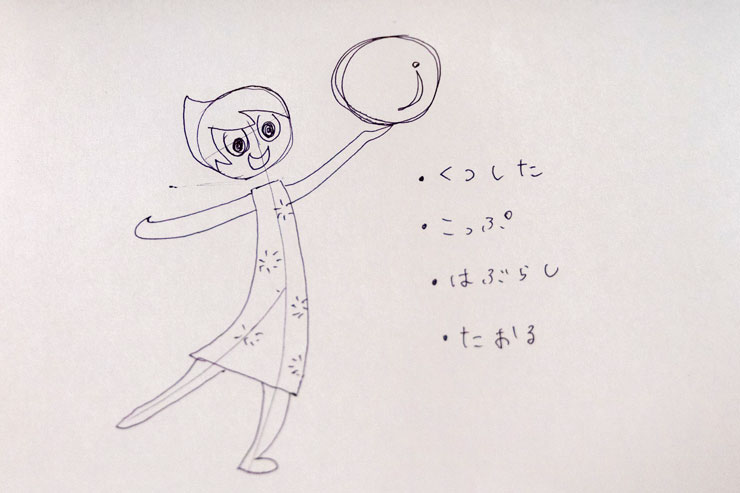 ・くつした
・こっぷ
・はぶらし
・たおる